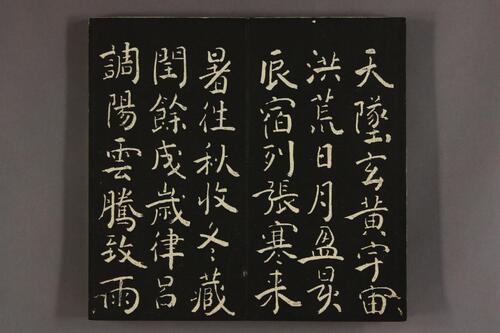 天墬玄黃宇宙
洪荒日月盈昃
辰宿列張寒来
暑往秋收冬藏
閏餘成歲律呂
調陽雲騰致雨